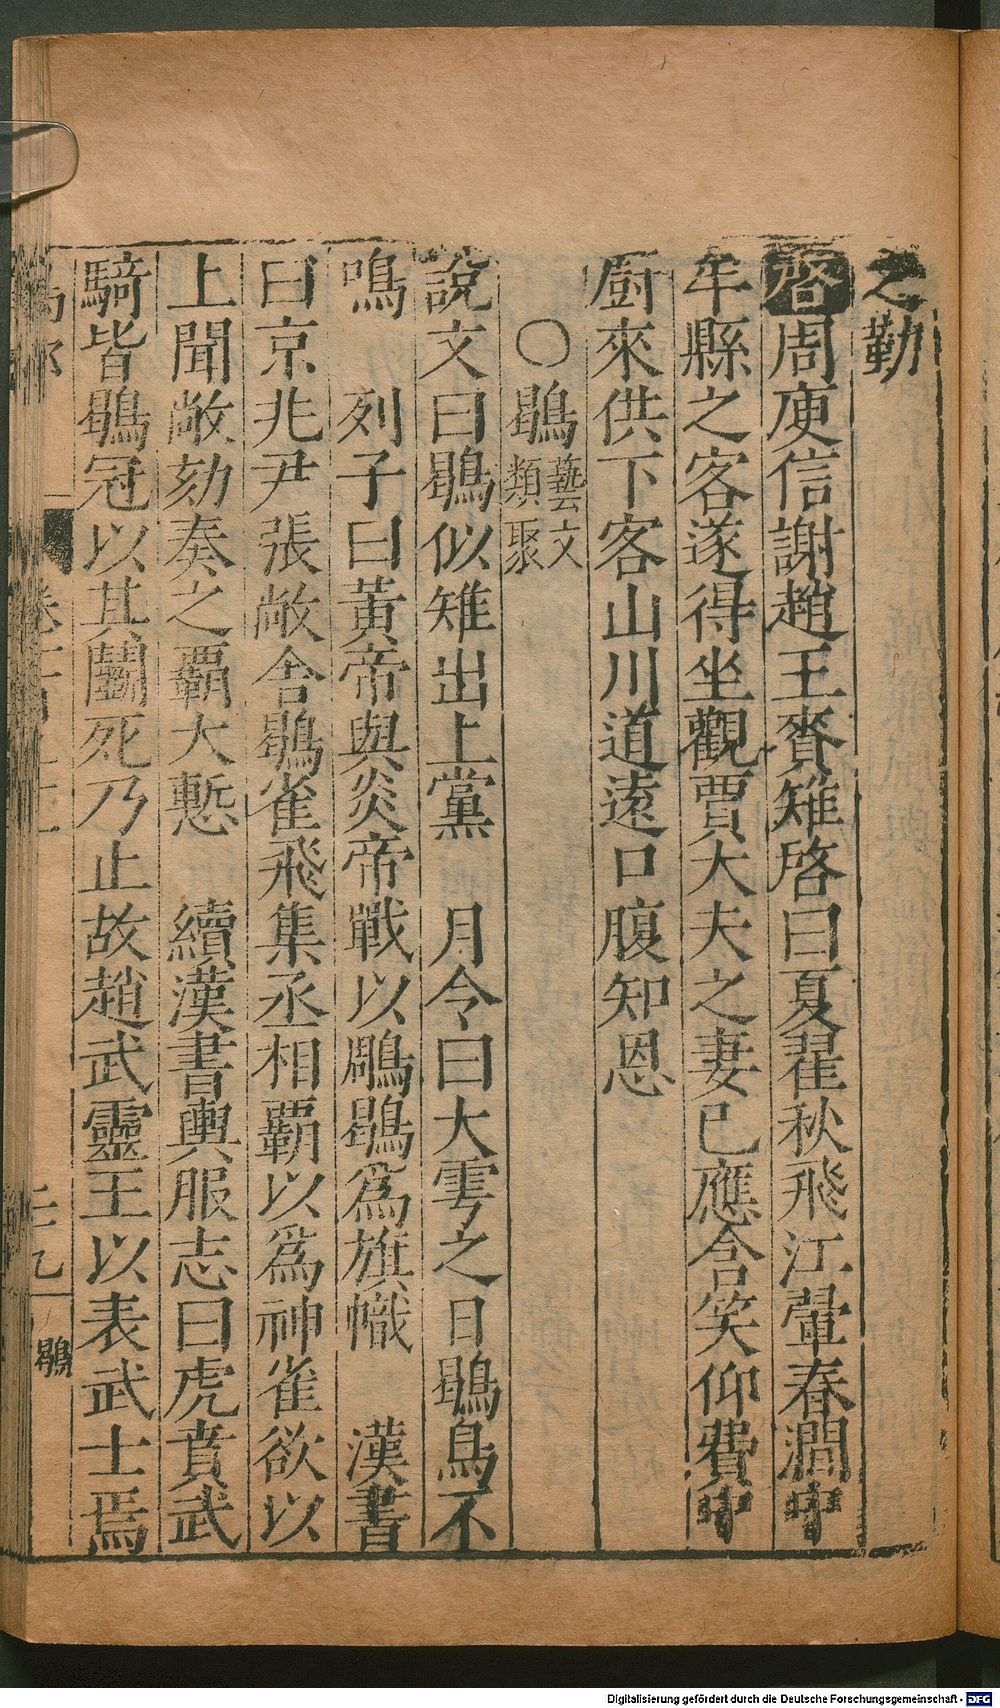 之勤
啓周庾信謝趙王賚雉啓曰夏翟秋飛江翬春澗中
牟縣之客遂得坐觀賈大夫之妻已應含笑仰費中
厨來供下客山川道遠口腹知恩
○鶡藝文類聚
說文曰鶡似雉出上黨 月令曰大雩之日鶡鳥不
鳴 列子曰黃帝與炎帝戰以鵰鶡爲旗幟 漢書
曰京兆尹張敞舍鶡雀飛集丞相覇以爲神雀欲以
上聞敞劾奏之覇大慙 續漢書輿服志曰虎賁武
騎皆鶡冠以其鬭死乃止故趙武靈王以表武士焉
鳥部
鶡
Digitalisierung gefördert durch die Deutsche Forschungsgemeinschaft - DFG